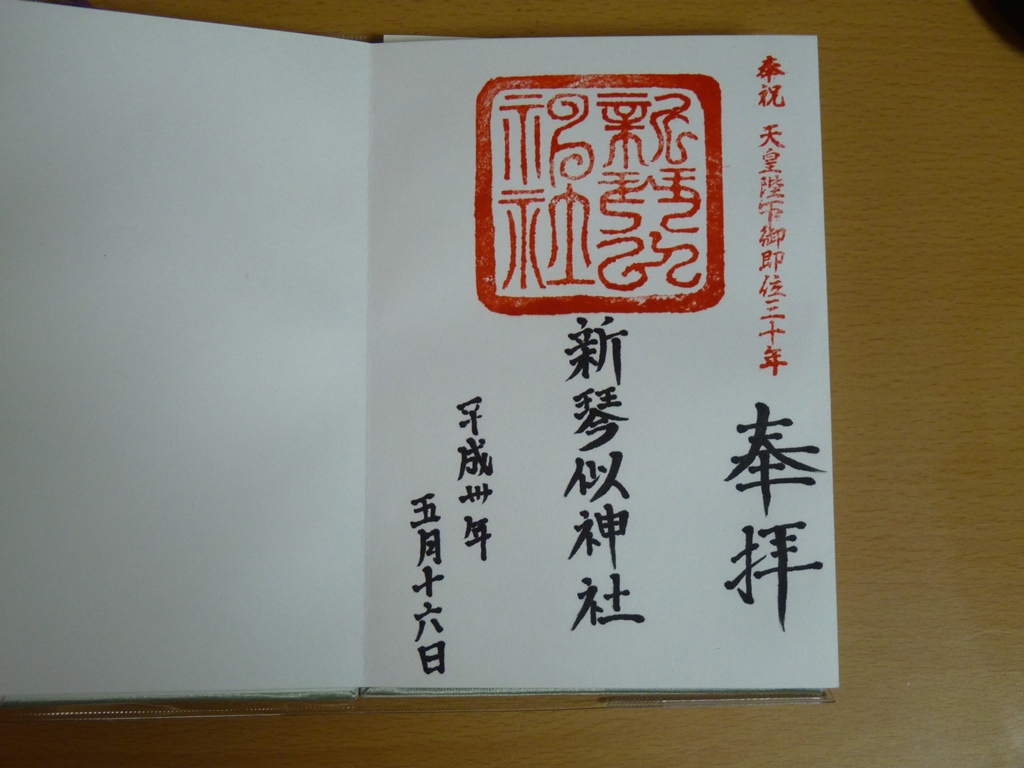 奉祝 天皇陛下御即位三十年
奉拝
新琴似
神社
新琴似神社
平成卅年
五月十六日